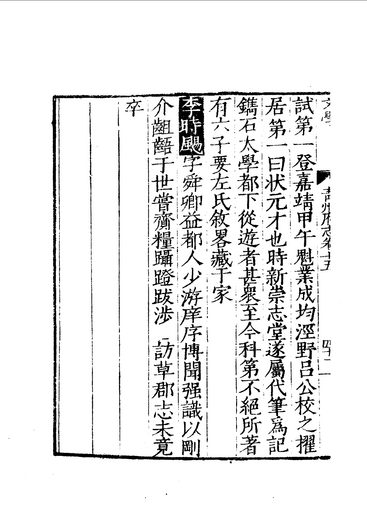 文學
青州府志卷十五
四十二
試第一登嘉靖甲午魁業成均涇野呂公校之擢
居第一曰狀元才也時新崇志堂遂屬代筆爲記
鐫石太學都下從遊者甚衆至今科第不絕所著
有六子要左氏敘畧藏于家
李時颺字舜卿益都人少游庠序博聞强識以剛
介齟齬于世嘗齎糧躡蹬跋涉 訪草郡志未竟
卒